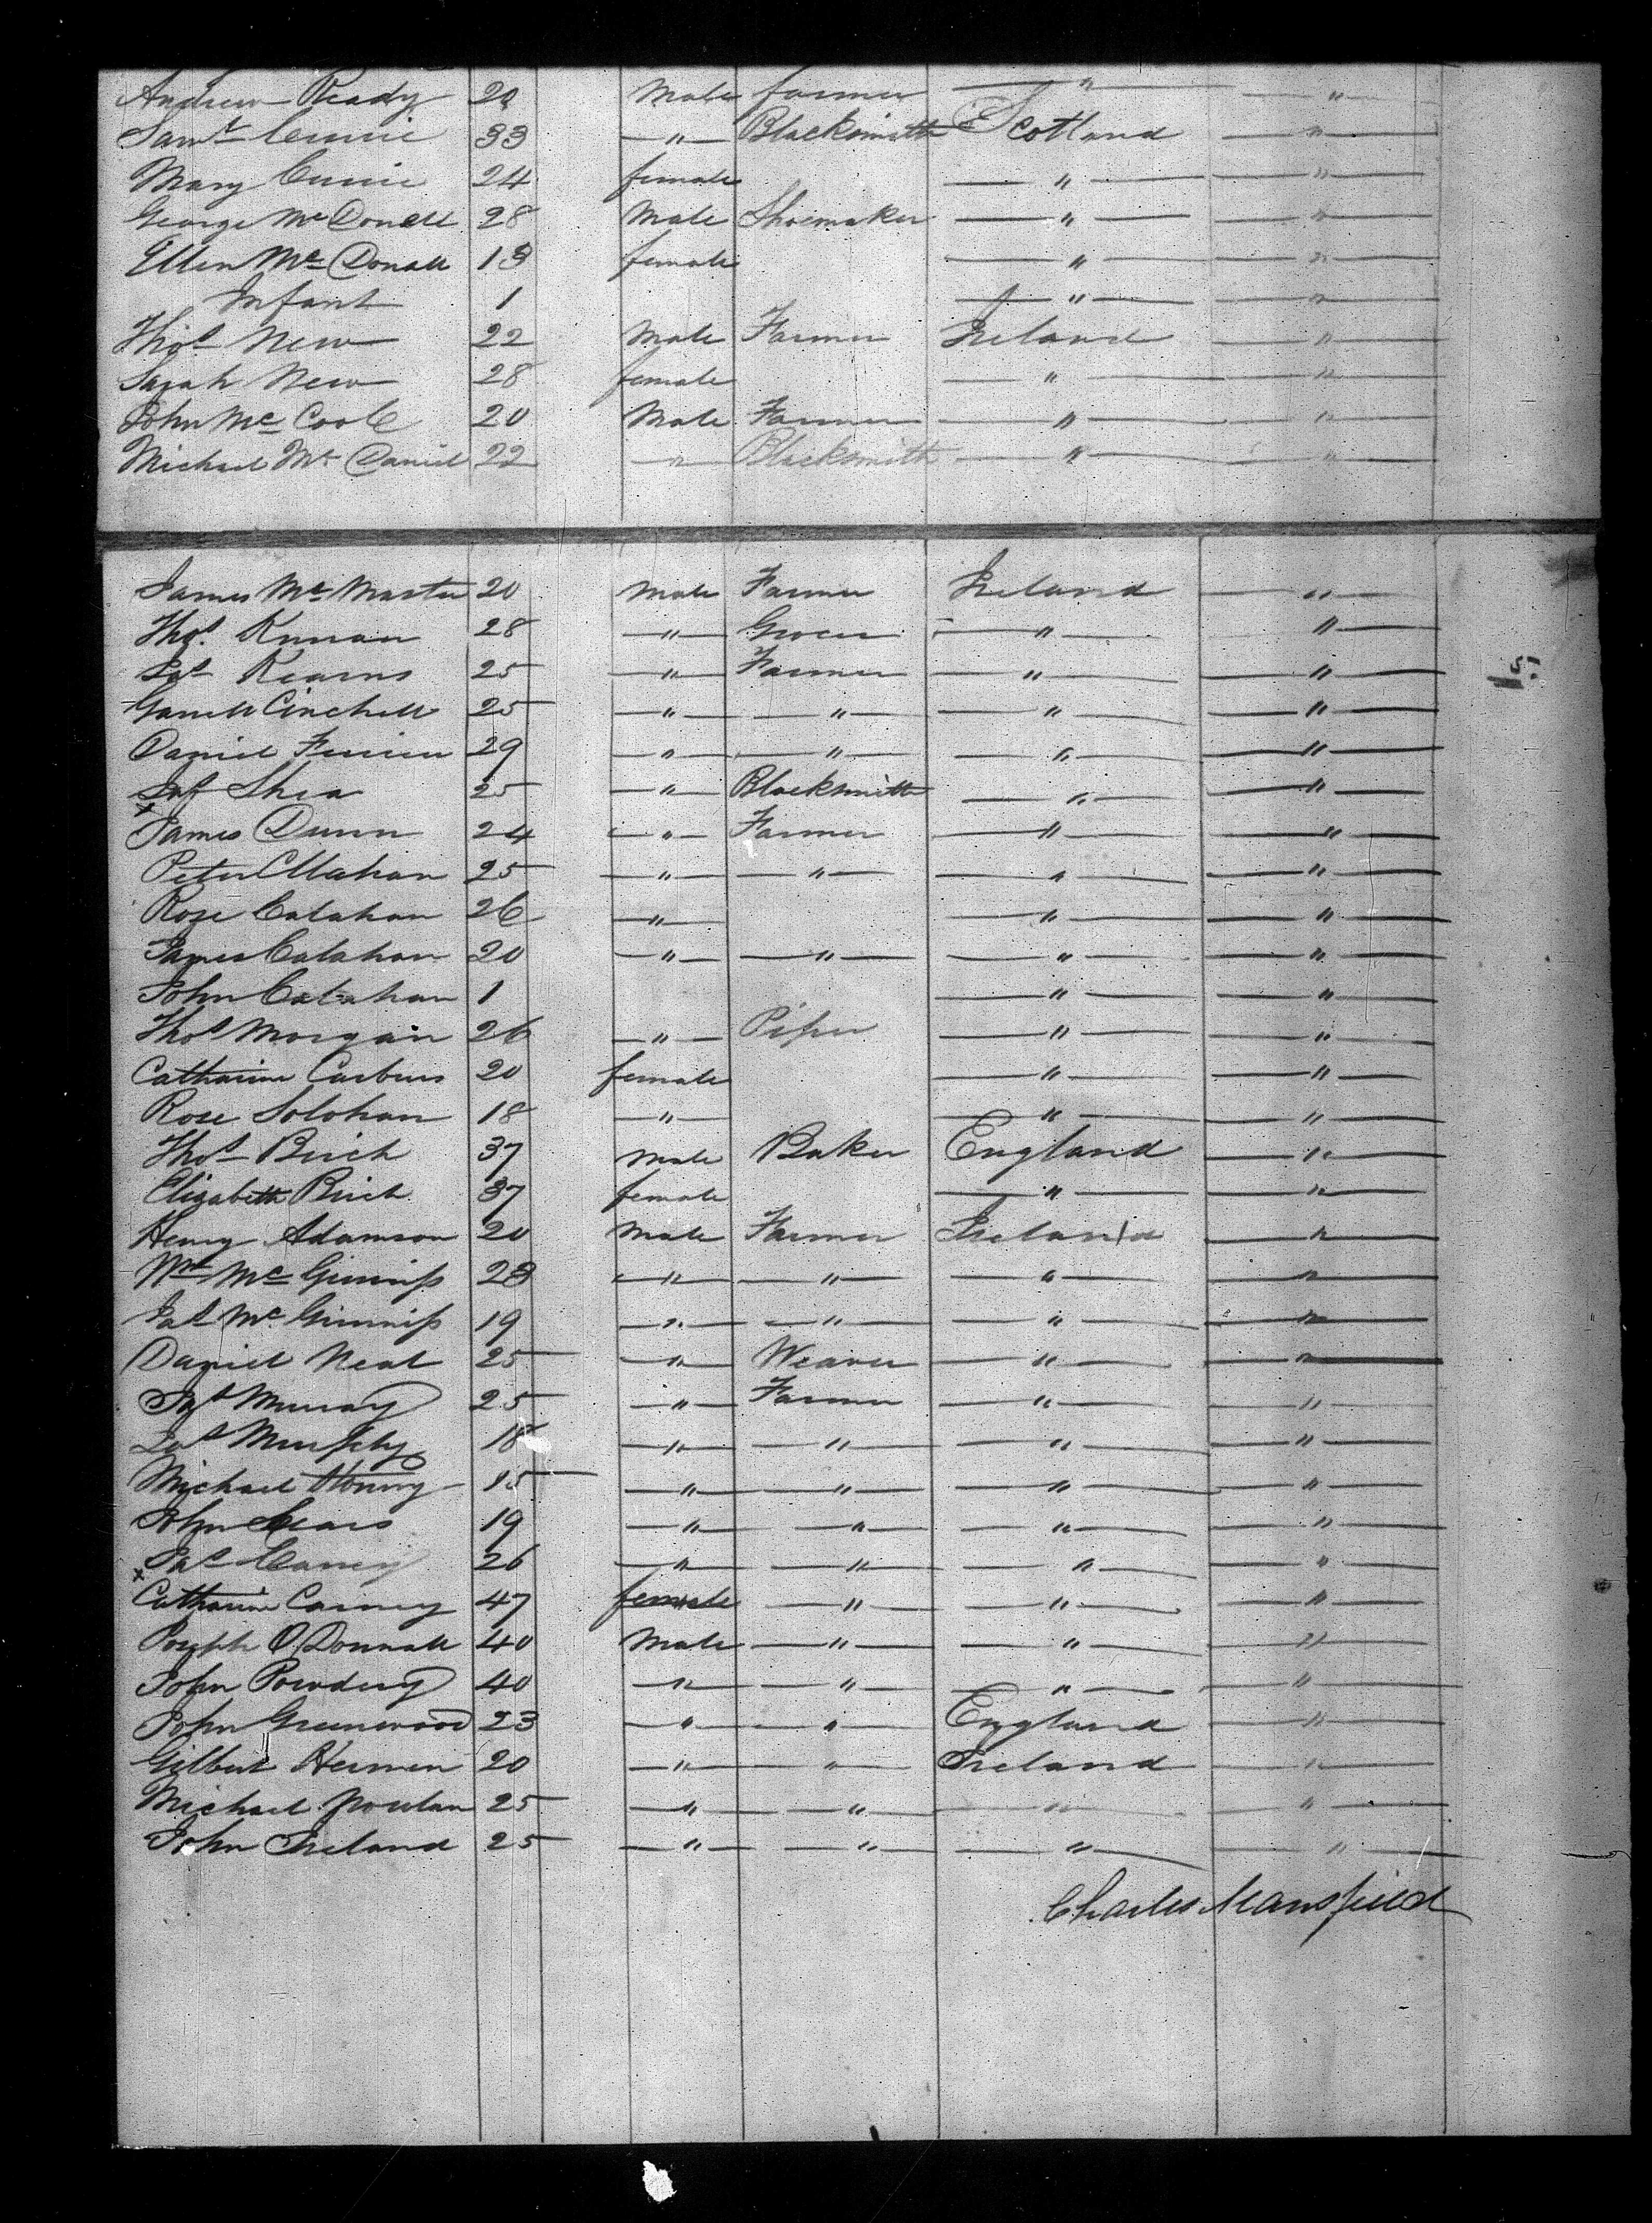 Andrew Ready 20 Male farmer " "
Saml. Currie 33 " Blacksmith Scotland "
Mary Currie 24 female " "
George McDonell 28 Male Shoemaker " "
Ellen McDonall 13 female " "
Infant 1 " "
Thos. New 22 Male Farmer Ireland "
Sarah New 28 female " "
John McCoole 20 Male Farmer " "
Michael McDaniel 22 " Blacksmith " "
James McMaster 20 Male Farmer Ireland "
Thos. 28 " Grocer " "
Pat Kearns 25 " Farmer " "
25 " " " "
Daniel 29 " " " "
Pat Shea 25 " Blacksmith " "
x
James Dunn 24 " Farmer " "
Peter 25 " " " "
Rose Calahan 26 " " "
James Calahan 20 " " " "
John Calahan 1 " "
Thos Morgan 26 " Piper " "
Catharine 20 female " "
Rose Solohan 18 " " "
Thos Birch 37 Male Baker England "
Elizabeth Birch 37 female " "
Henry Adamson 20 Male Farmer Ireland "
Wm McGinniss 23 " " " "
Pat McGinniss 19 " " " "
Daniel Neal 25 " Weaver " "
Pat Murray 25 " Farmer " "
Pat Murphy 18 " " " "
Michael 15 " " " "
John 19 " " " "
x Pat 26 " " " "
Catharine Carney 47 female " " "
Joseph O'Donnall 40 Male " " "
John 40 " " " "
John Greenwood 23 " " England "
Gilbert 20 " " Ireland "
Michael 25 " " " "
John Ireland 25 " " " "
Charles Mansfield